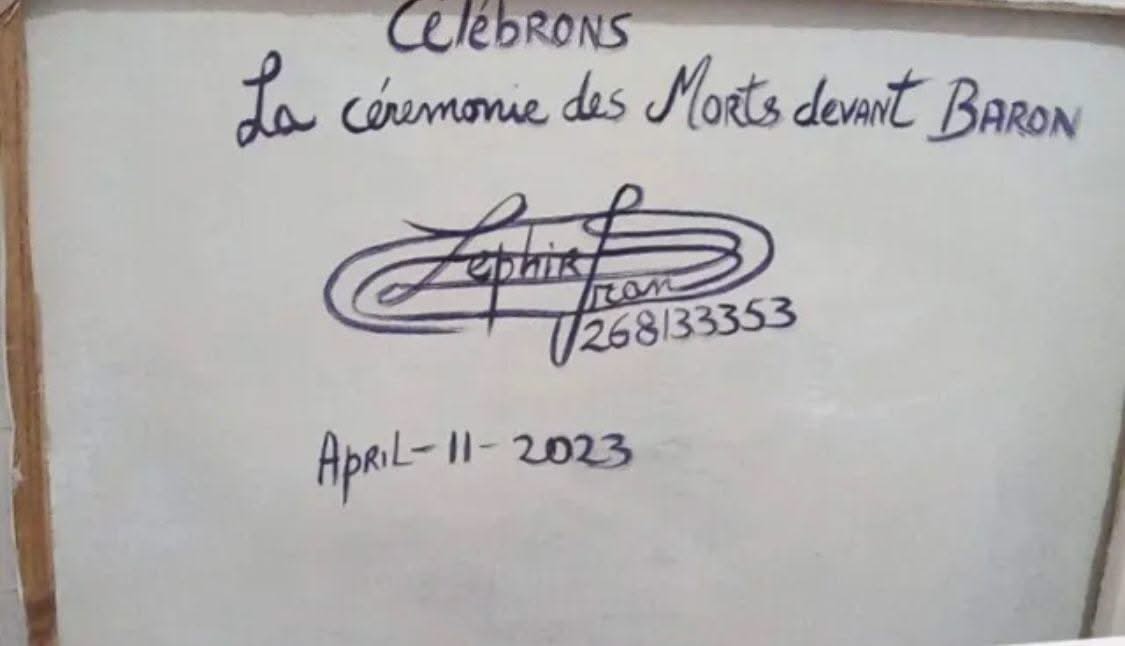 CélébRONS
La céremonie des MoRTs devANT BARON
Zephir
fran
268133353
APRIL-11-2023